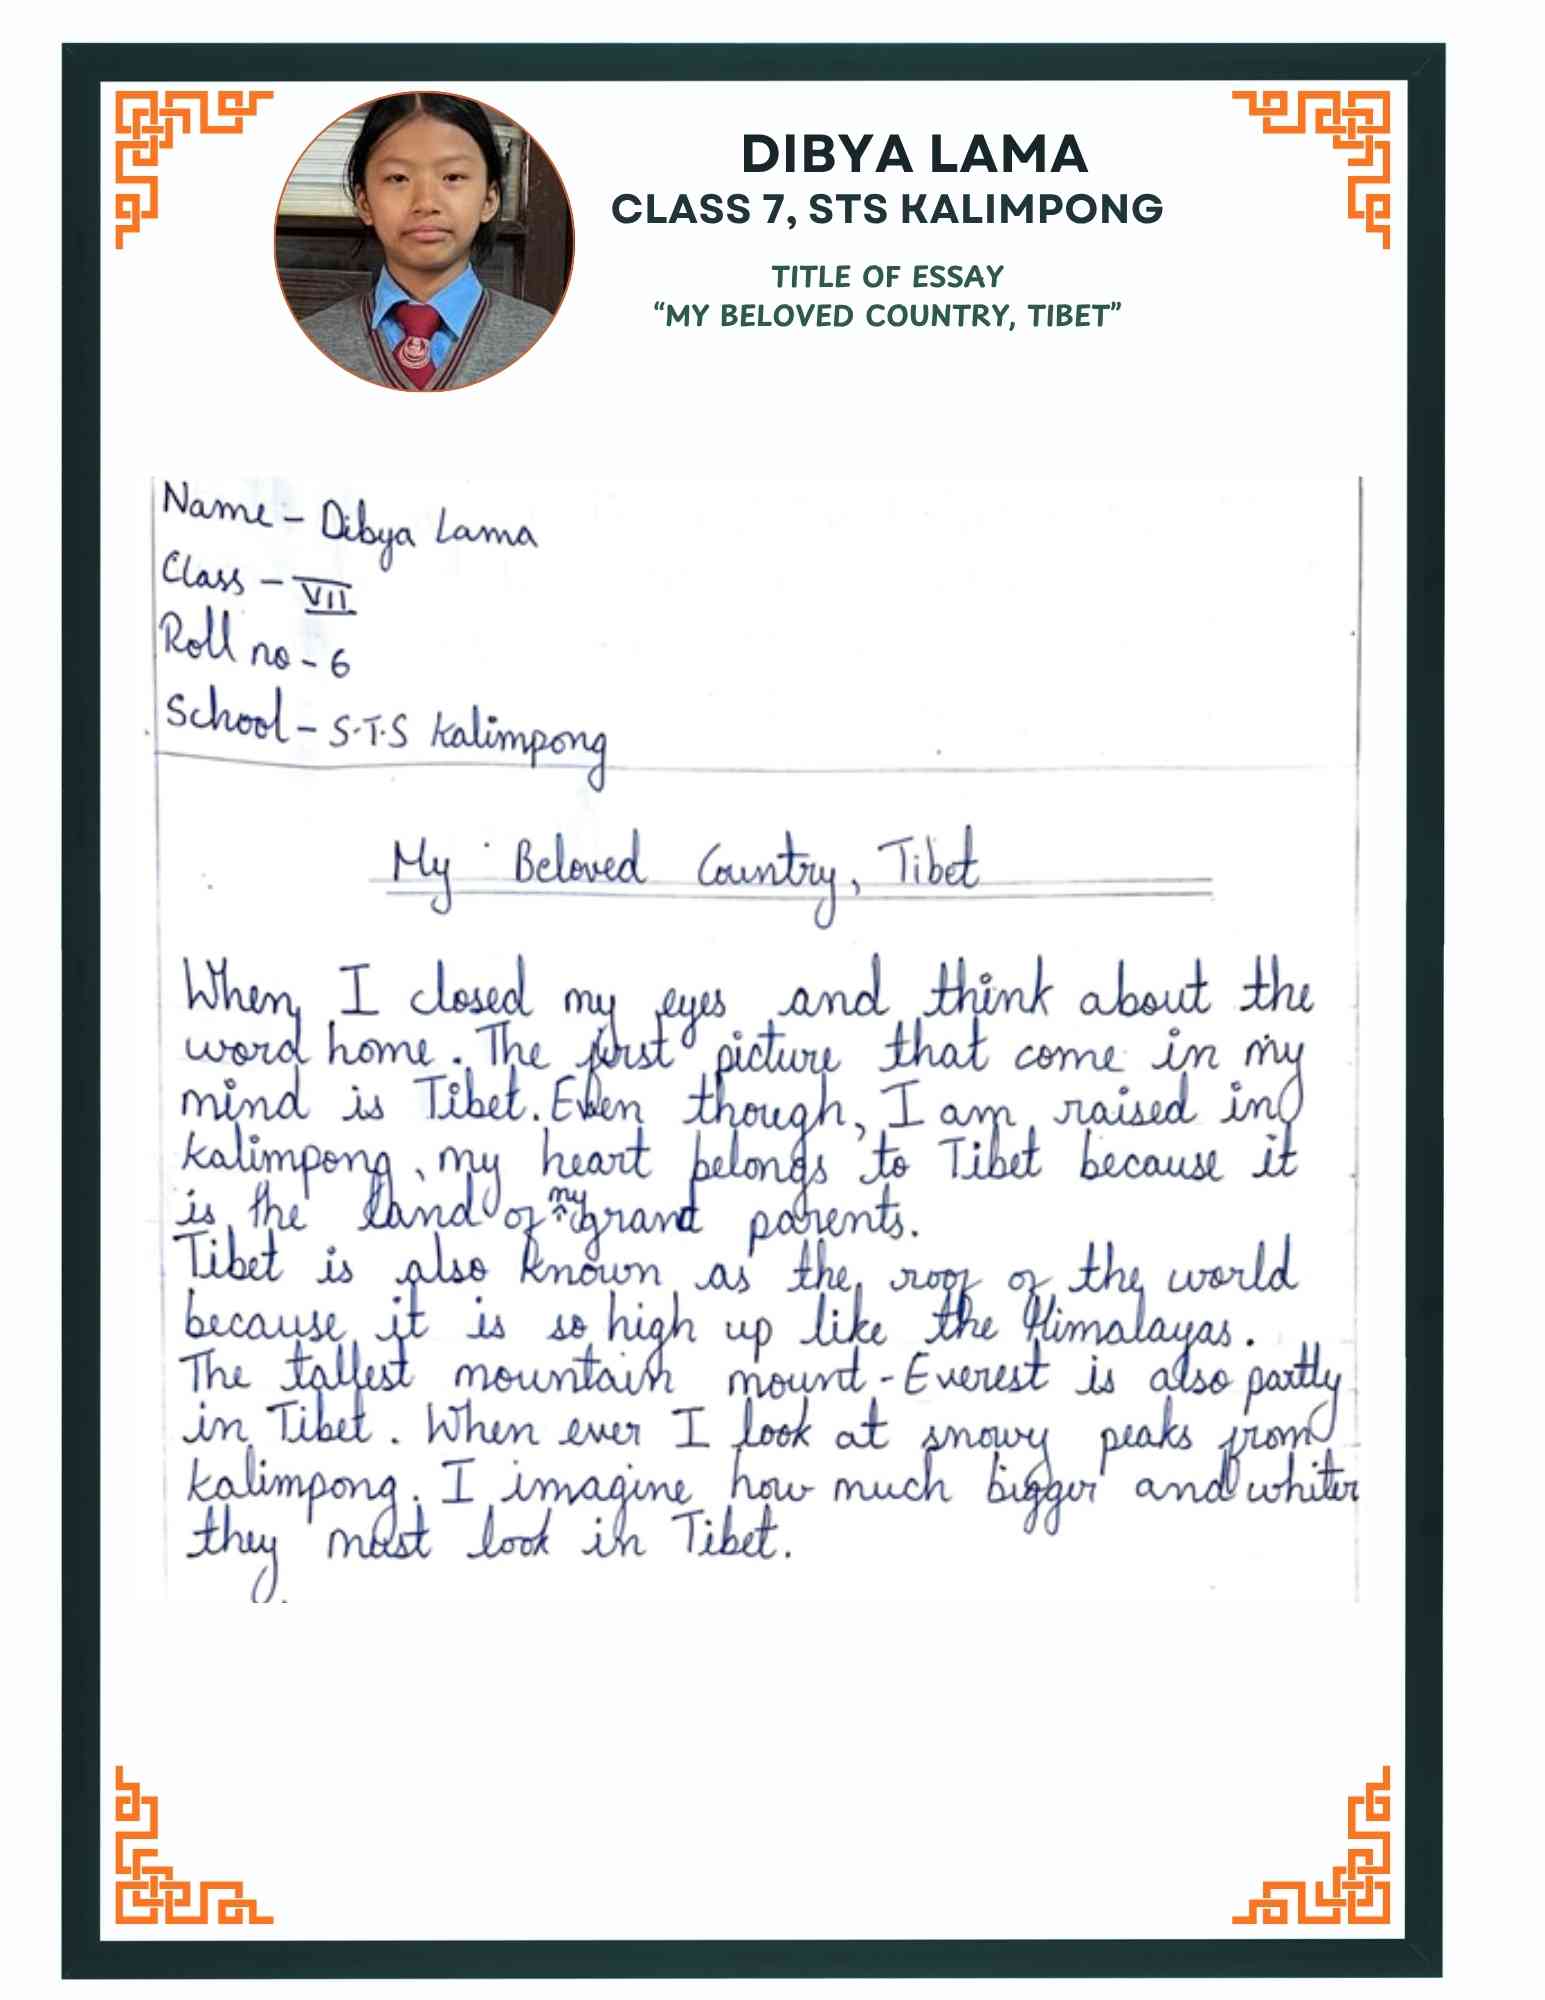 DIBYA LAMA
CLASS 7, STS KALIMPONG
TITLE OF ESSAY
“MY BELOVED COUNTRY, TIBET”
Name – Dibya Lama
Class – VII
Roll no - 6
School – S.T.S Kalimpong
My Beloved Country, Tibet
When I closed my eyes and think about the
word home. The first picture that come in my
mind is Tibet. Even though, I am raised in
kalimpong, my heart belongs to Tibet because it
is the land of my grand parents.
Tibet is also known as the roof of the world
because it is so high up like the Himalayas.
The tallest mountain mount-Everest is also partly
in Tibet. When ever I look at snowy peaks from
kalimpong. I imagine how much bigger and whiter
they must look in Tibet.